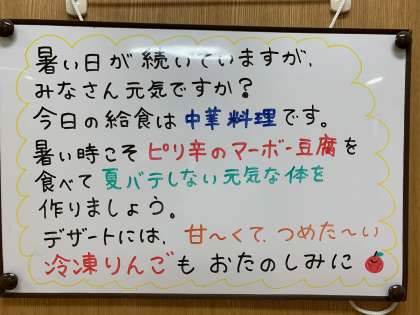 暑い日が続いていますが、
みなさん元気ですか？
今日の給食は中華料理です。
暑い時こそピリ辛のマーボー豆腐を
食べて夏バテしない元気な体を
作りましょう。
デザートには、甘〜くて、つめた〜い
冷凍りんごもおたのしみに